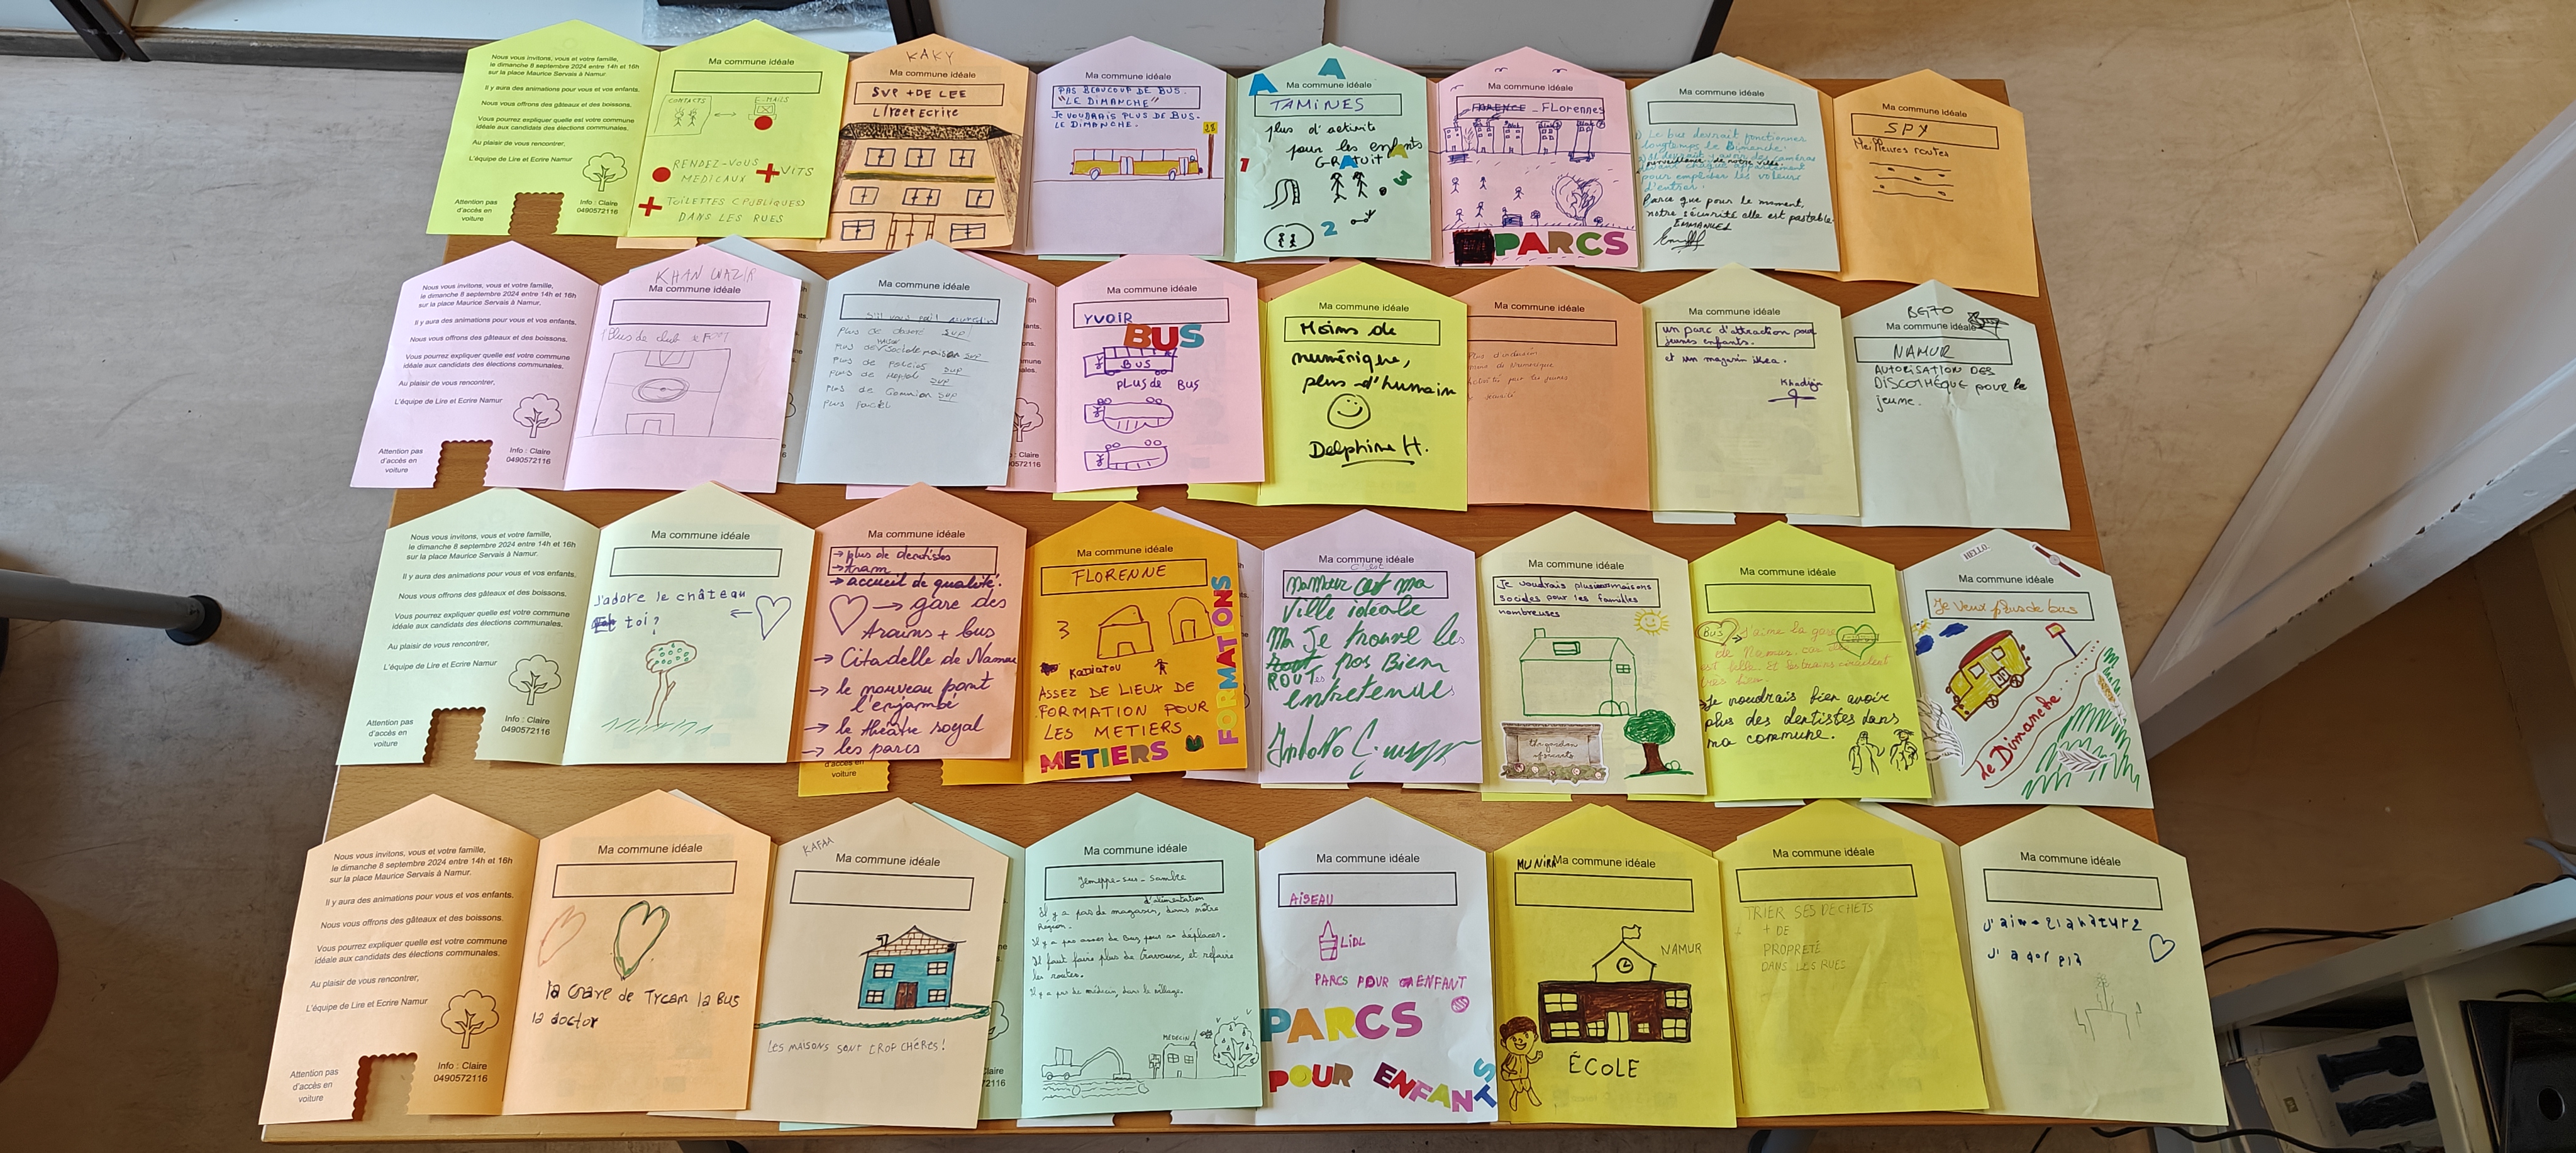 Nous vous invitons, vous et votre famille,
le dimanche 8 septembre 2024 entre 14h et 16h
sur la place Maurice Servais à Namur.
Il y aura des animations pour vous et vos enfants.
Nous vous offrons des gâteaux et des boissons.
Vous pourrez expliquer quelle est votre commune
idéale aux candidats des élections communales.
Au plaisir de vous rencontrer,
L'équipe de Lire et Ecrire Namur
Attention pas
d'accès en
voiture
Info : Claire
0490572116
Ma commune idéale
CONTACTS
E-MAILS
RENDEZ-VOUS
MEDICAUX
+ VITS
+ TOILETTES (PUBLIQUES)
DANS LES RUES
KAKY
Ma commune idéale
SVP + DE LEE
Lireet Ecrire
Ma commune idéale
PAS BEAUCOUP DE BUS.
"LE DIMANCHE"
JE VOUDRAIS PLUS DE BUS.
LE DIMANCHE.
28
A A
Ma commune idéale
TAMINES
plus d'activité
pour les enfants
GRATUIT
1
3
2
Ma commune idéale
FLorennes
PARCS
Ma commune idéale
1) Le bus devrait fonctionner
longtemps le Dimanche.
pour empêcher les voleurs
d'entrer.
Parce que pour le moment,
notre sécurité elle est pas table.
EMMANUEL
Ma commune idéale
SPY
Meilleures routes
Nous vous invitons, vous et votre famille,
le dimanche 8 septembre 2024 entre 14h et 16h
sur la place Maurice Servais à Namur.
Il y aura des animations pour vous et vos enfants.
Nous vous offrons des gâteaux et des boissons.
Vous pourrez expliquer quelle est votre commune
idéale aux candidats des élections communales.
Au plaisir de vous rencontrer,
L'équipe de Lire et Ecrire Namur
Attention pas
d'accès en
voiture
Info : Claire
0490572116
KHAN WAZIR
Ma commune idéale
Plus de club de FOOT
Ma commune idéale
S'il vous plaît
Plus de
Plus de Sociale maison SVP
Plus de
Plus de
Plus de
Plus
Ma commune idéale
YVOIR
BUS
BUS
plus de BUS
Ma commune idéale
Moins de
numérique,
plus d'humain
Delphine H.
Ma commune idéale
Plus d'inclusion
moins de numérique
activité pour les jeunes
sécurité
Ma commune idéale
un parc d'attraction pour
jeunes enfants.
et un magasin ikea.
Khadija
BG70
Ma commune idéale
NAMUR
AUTORISATION DES
DISCOTHÉQUE pour le
jeune.
Nous vous invitons, vous et votre famille,
le dimanche 8 septembre 2024 entre 14h et 16h
sur la place Maurice Servais à Namur.
Il y aura des animations pour vous et vos enfants.
Nous vous offrons des gâteaux et des boissons.
Vous pourrez expliquer quelle est votre commune
idéale aux candidats des élections communales.
Au plaisir de vous rencontrer,
L'équipe de Lire et Ecrire Namur
Attention pas
d'accès en
voiture
Info : Claire
0490572116
Ma commune idéale
J'adore le château
Et toi ?
Ma commune idéale
→ plus de dentistes
→ tram
→ accueil de qualité.
→ gare des
trains + bus
→ Citadelle de Namur
→ le nouveau pont
l'enjambe
→ le théâtre royal
→ les parcs
d'accès en
voiture
Ma commune idéale
FLORENNE
3
KADIATOU
ASSEZ DE LIEUX DE
FORMATION POUR
LES METIERS
METIERS
FORMATIONS
Ma commune idéale
Namur c'est ma
ville idéale
Je trouve les
ROUTes pas Bien
entretenues
Ma commune idéale
Je voudrais plusieurs maisons
sociales pour les familles
nombreuses
the garden
Ma commune idéale
Bus
J'aime la gare
de Namur. car elle
est belle. Et les trains circulent
très bien.
Je voudrais bien avoir
plus des dentistes dans
ma commune.
HELLO.
Ma commune idéale
Je veux plus de bus
le Dimanche
Nous vous invitons, vous et votre famille,
le dimanche 8 septembre 2024 entre 14h et 16h
sur la place Maurice Servais à Namur.
Il y aura des animations pour vous et vos enfants.
Nous vous offrons des gâteaux et des boissons.
Vous pourrez expliquer quelle est votre commune
idéale aux candidats des élections communales.
Au plaisir de vous rencontrer,
L'équipe de Lire et Ecrire Namur
Attention pas
d'accès en
voiture
Info : Claire
0490572116
Ma commune idéale
la Gare de Tream la Bus
la doctor
KAFAA
Ma commune idéale
LES MAISONS SONT TROP CHÉRES !
Ma commune idéale
Jemeppe-sur-Sambre
d'alimentation
Il y a pas de magasin, dans nôtre
Région.
Il y a pas assez de Bus pour se déplacer.
Il faut faire plus de travaux, et refaire
les routes.
Il y a pas de médecin, dans le village.
MEDECIN
Ma commune idéale
AISEAU
LIDL
PARCS POUR ENFANT
PARCS
POUR ENFANTS
MUNIRA
Ma commune idéale
NAMUR
ÉCOLE
Ma commune idéale
TRIER SES DECHETS
+ DE
PROPRETÉ
DANS LES RUES
Ma commune idéale
J'aime la nature
J'adore